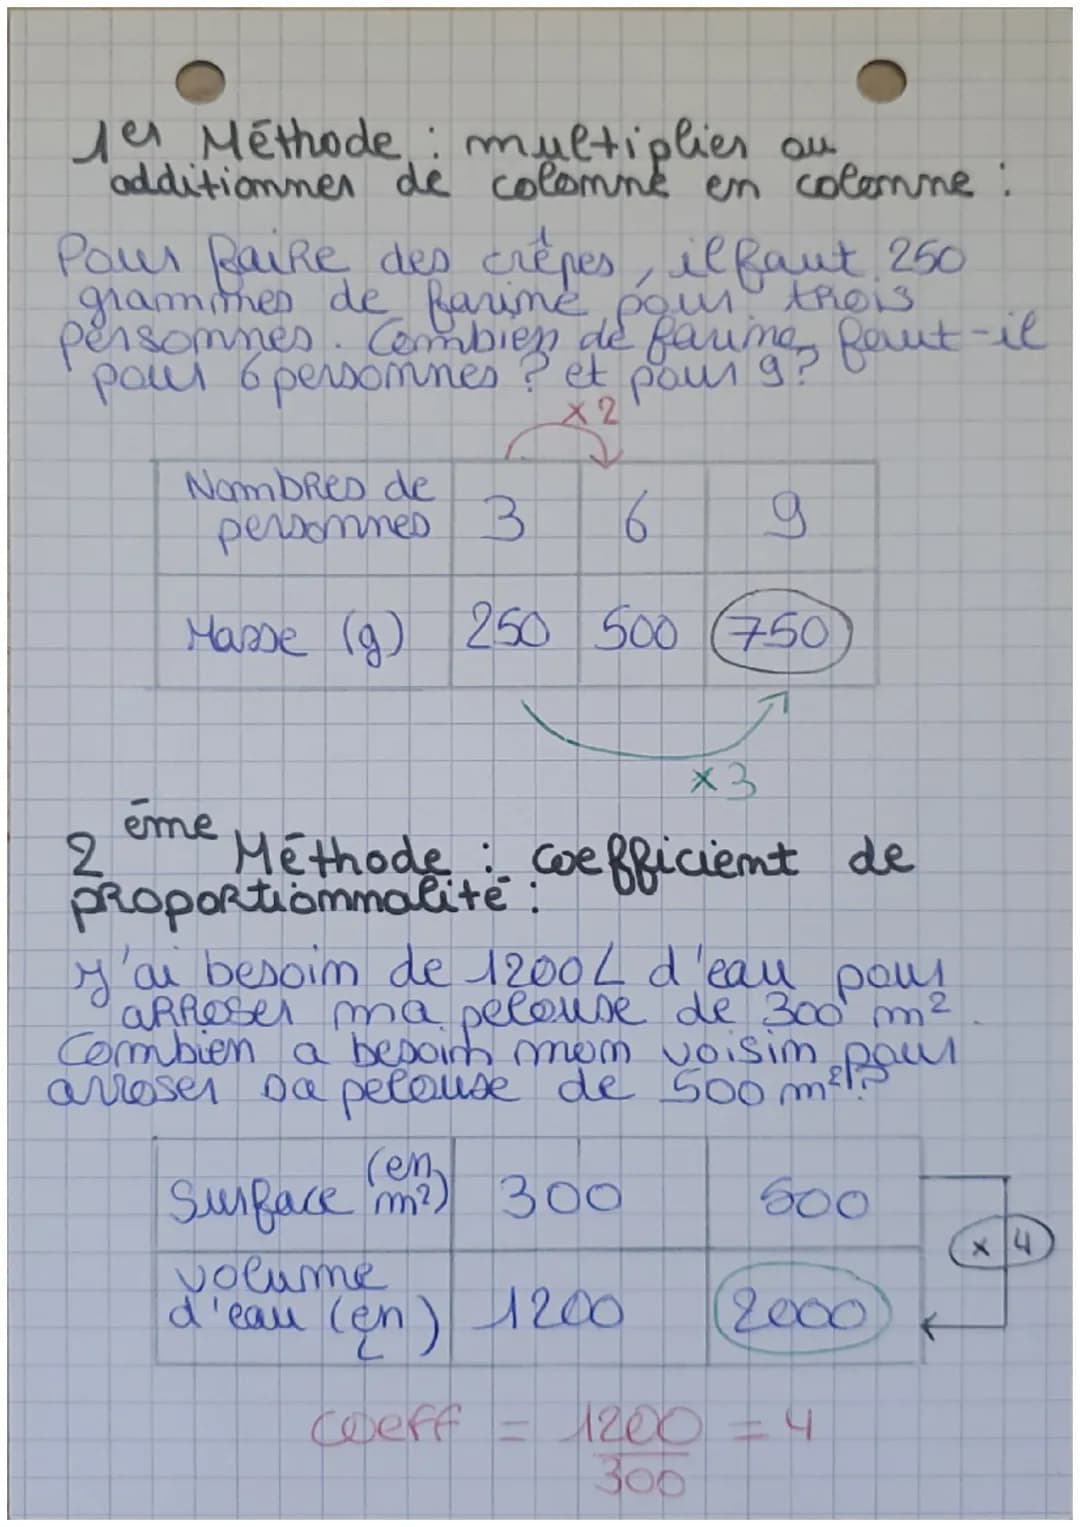 1er Méthode : multiplier ou
additionner de colonne en colonne :
Pour faire des crêpes, il faut 250
grammes de farine pour trois
personnes. Combien de farine faut-il
pour 6 personnes ? et pour 9 ?
x 2
Nombres de personnes 3 6 9
Masse (g) 250 500 750
x 3
2ème Méthode : coefficient de
proportionnalité :
J'ai besoin de 1200L d'eau pour
arroser ma pelouse de 300 m².
Combien a besoin mon voisin pour
arroser sa pelouse de 500 m² ?
Surface (en m²) 300 500
x 4
volume d'eau (en L) 1200 2000
coeff = 1200 = 4
300